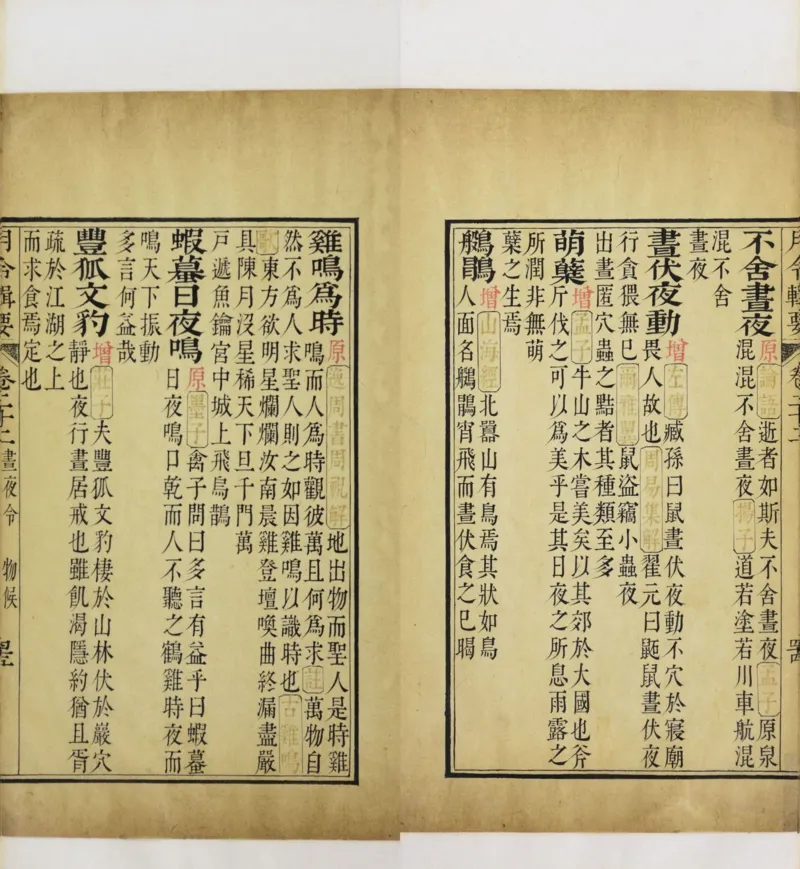 月令輯要 卷二十二
不舍晝夜 原 論語 逝者如斯夫不舍晝夜 孟子 原泉
混混不舍晝夜 揚子 道若塗若川車航混
混不舍
晝夜
晝伏夜動 增 左傳 臧孫曰鼠晝伏夜動不穴於寢廟
畏人故也 周易集解 翟元曰鼫鼠晝伏夜
行貪猥無已 爾雅翼 鼠盜竊小蟲夜
出晝匿穴蟲之黠者其種類至多
萌蘖 增 孟子 牛山之木嘗美矣以其郊於大國也斧
斤伐之可以爲美乎是其日夜之所息雨露之
所潤非無萌
蘖之生焉
鶥 增 山海經 北囂山有鳥焉其狀如烏
人面名鶥宵飛而晝伏食之已暍
雞鳴爲時 原 逸周書周祝解 地出物而聖人是時雞
鳴而人爲時觀彼萬且何爲求 註 萬物自
然不爲人求聖人則之如因雞鳴以識時也 古雞鳴
歌 東方欲明星爛爛汝南晨雞登壇喚曲終漏盡嚴
具陳月沒星稀天下旦千門萬
戸遞魚鑰宮中城上飛烏鵲
蝦蟇日夜鳴 原 墨子 禽子問曰多言有益乎曰蝦蟇
日夜鳴口乾而人不聽之鶴雞時夜而
鳴天下振動
多言何益哉
豐狐文豹 增 莊子 夫豐狐文豹棲於山林伏於巖穴
靜也夜行晝居戒也雖飢渴隱約猶且胥
疏於江湖之上
而求食焉定也
月令輯要 卷二十二 晝夜令 物候